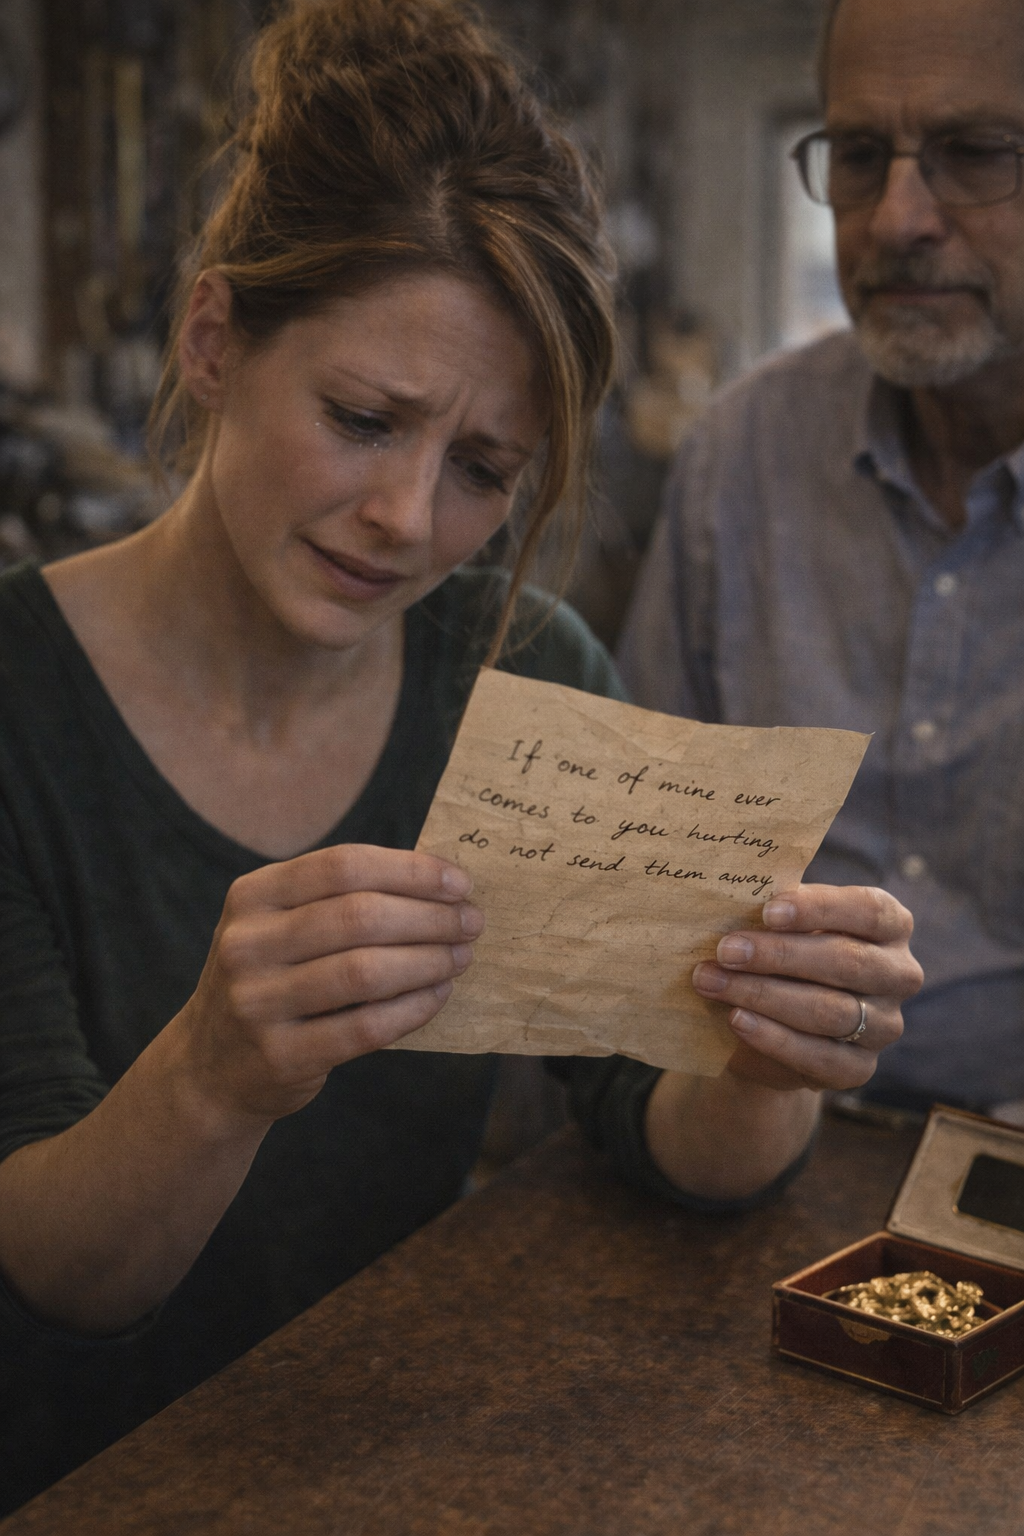 If one of mine ever
comes to you hurting,
do not send them away